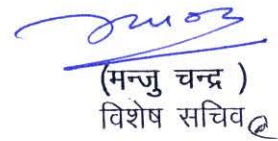 (मन्जु चन्द्र )
विशेष सचिव